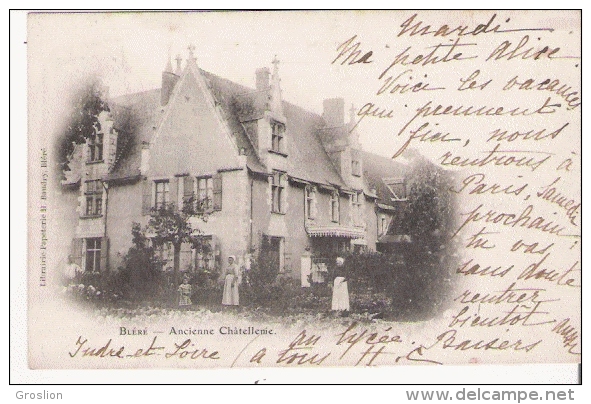 Mardi
Ma petite Alice
Voici les vacances
qui prennent
fin, nous
rentrons à
Paris, Samedi
prochain.
tu vas
sans doute
rentrer
bientôt aussi
au lycée Baisers
à tous
Indre-et-Loire
BLÉRÉ — Ancienne Châtellenie.
Librairie-Papeterie H. Baudry, Bléré
Groslion
http://www.delcampe.net